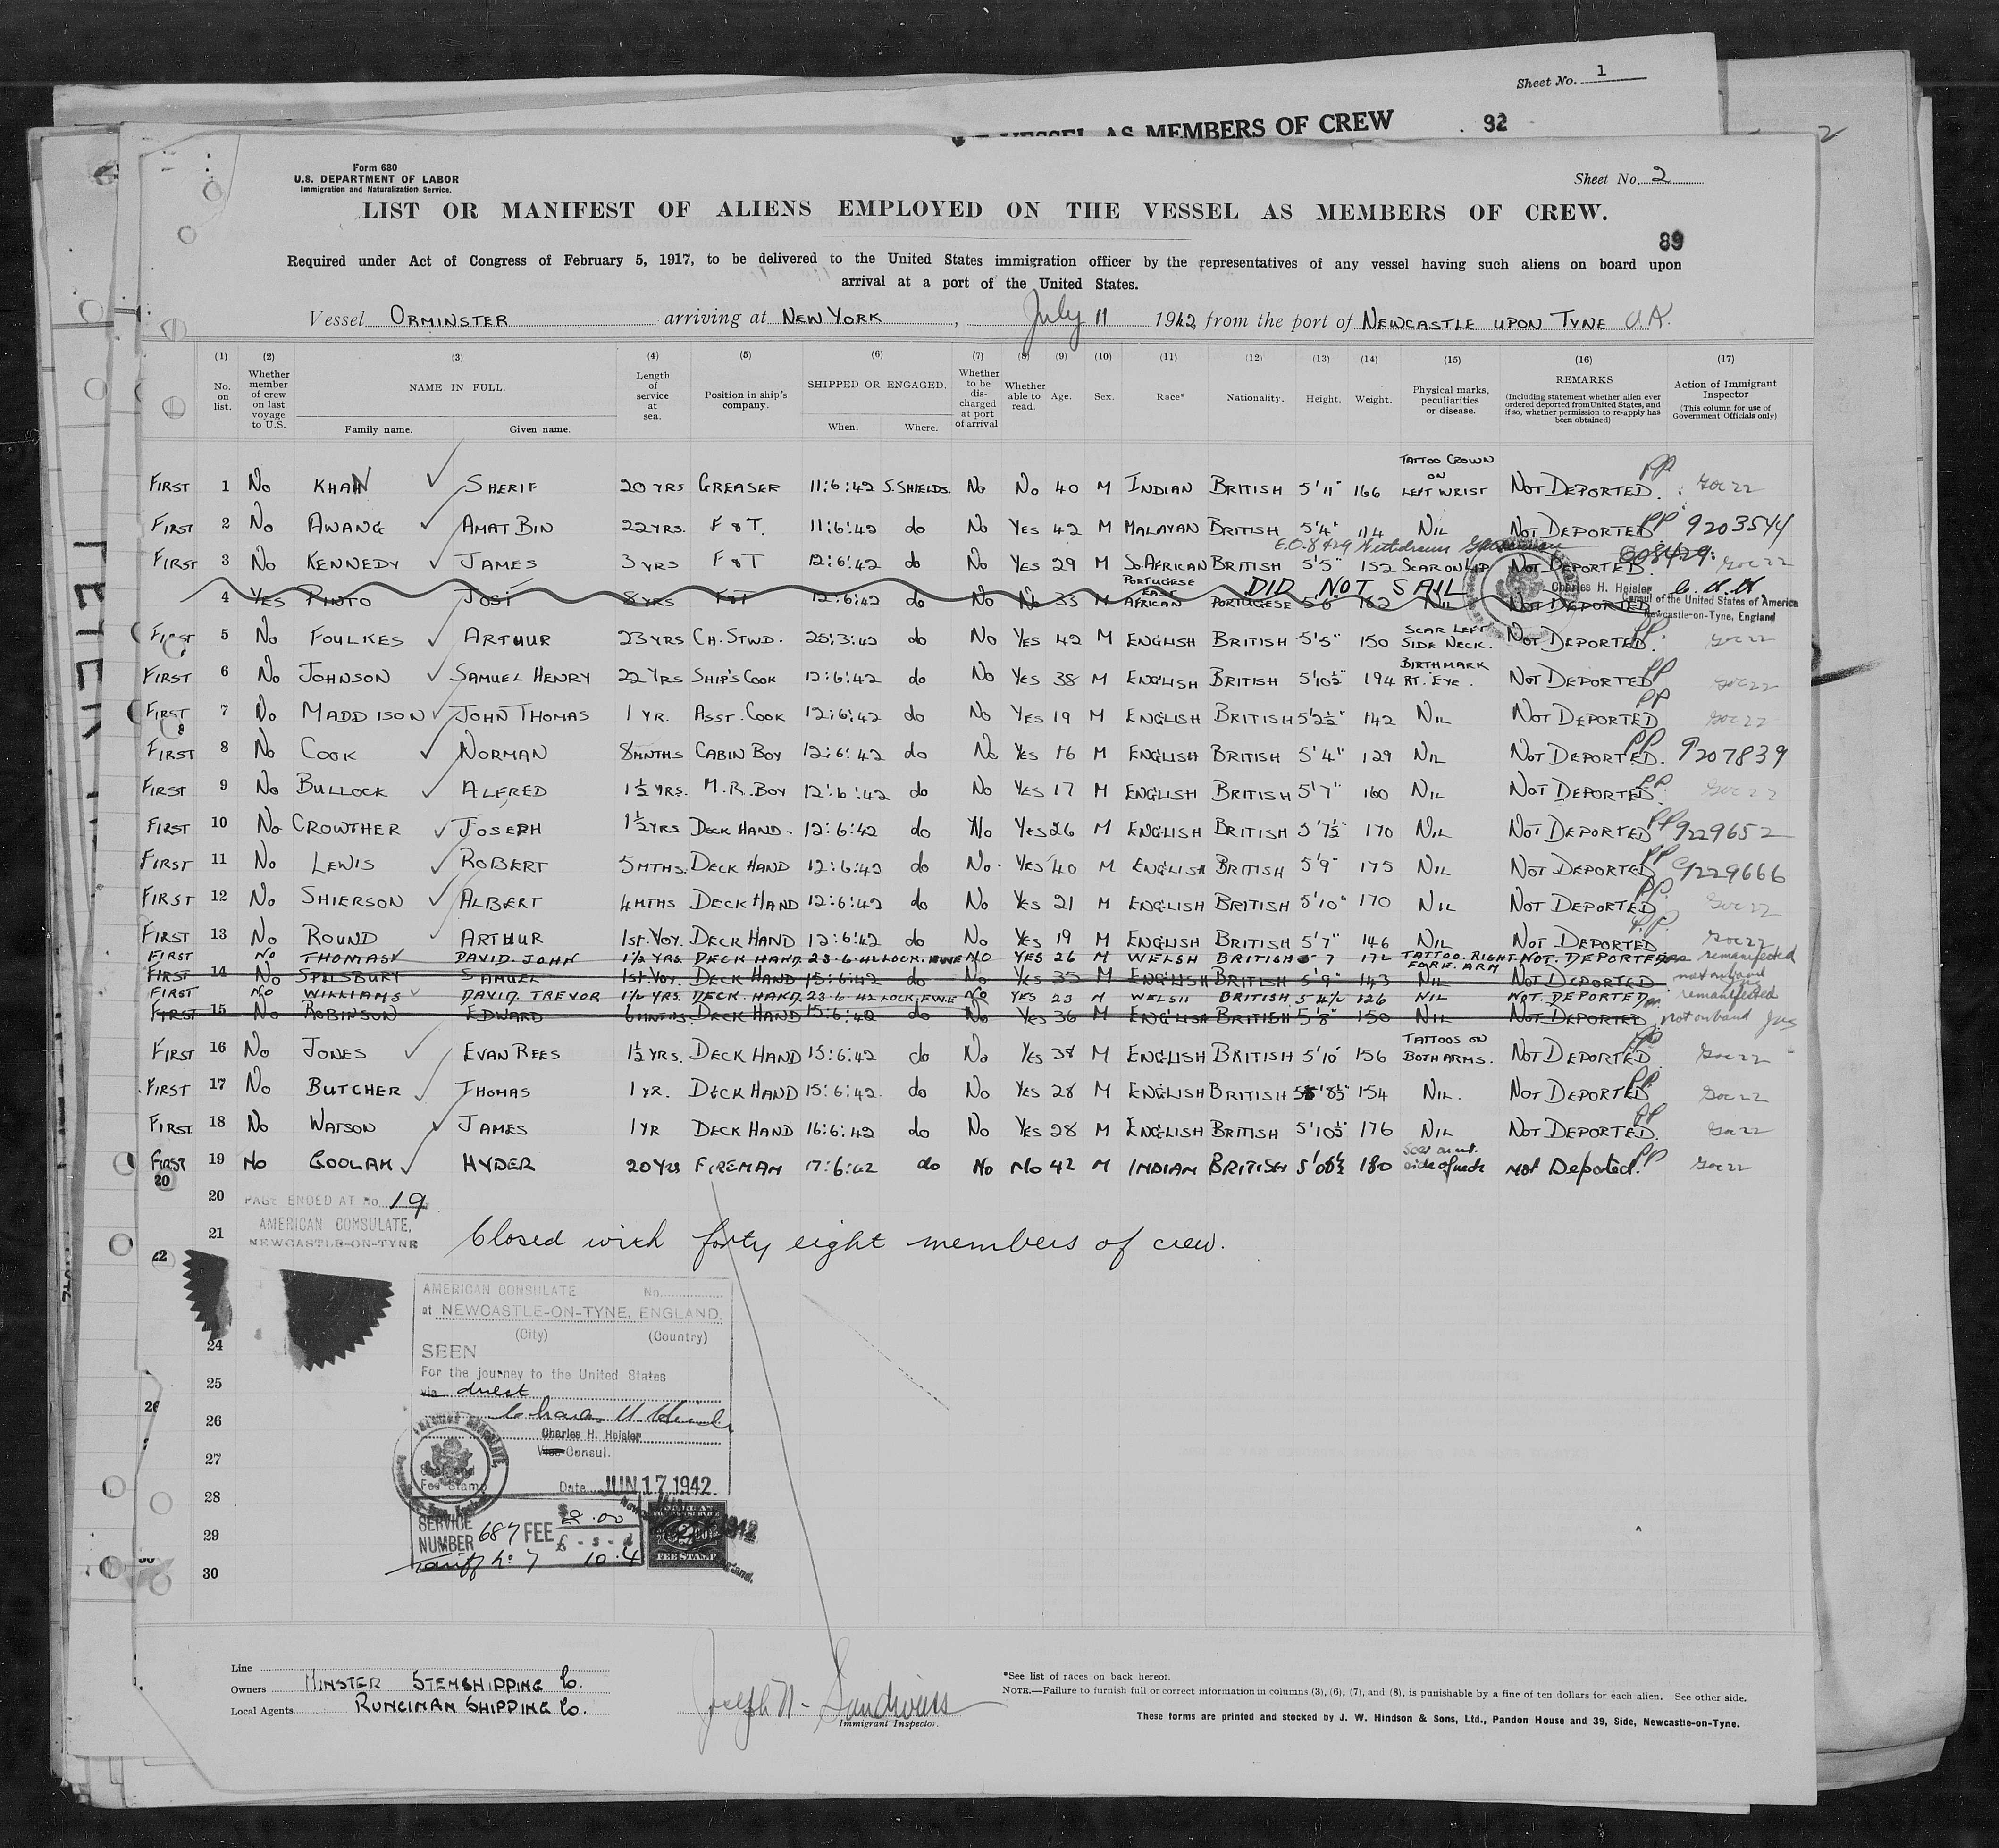 Sheet No. 1
VESSEL AS MEMBERS OF CREW
92
Form 680
U.S. DEPARTMENT OF LABOR
Immigration and Naturalization Service.
Sheet No. 2
LIST OR MANIFEST OF ALIENS EMPLOYED ON THE VESSEL AS MEMBERS OF CREW.
89
Required under Act of Congress of February 5, 1917, to be delivered to the United States immigration officer by the representatives of any vessel having such aliens on board upon
arrival at a port of the United States.
Vessel ORMINSTER arriving at NEW YORK, July 11 1942, from the port of NEWCASTLE UPON TYNE U.K.
(1) (2) (3) (4) (5) (6) (7) (8) (9) (10) (11) (12) (13) (14) (15) (16) (17)
No. on list. Whether member of crew on last voyage to U.S. NAME IN FULL. Family name. Given name. Length of service at sea. Position in ship's company. SHIPPED OR ENGAGED. When. Where. Whether to be discharged at port of arrival Whether able to read. Age. Sex. Race* Nationality. Height. Weight. Physical marks, peculiarities or disease. REMARKS (Including statement whether alien ever ordered deported from United States, and if so, whether permission to re-apply has been obtained) Action of Immigrant Inspector (This column for use of Government Officials only)
FIRST 1 No KHAN SHERIF 20 YRS GREASER 11:6:42 S.SHIELDS. No No 40 M INDIAN BRITISH 5'11" 166 TATTOO CROWN ON LEFT WRIST NOT DEPORTED. PP
FIRST 2 No AWANG AMAT BIN 22 YRS. F & T. 11:6:42 do No YES 42 M MALAYAN BRITISH 5'4" 114 NIL NOT DEPORTED PP 9203544
E.O. 8429 Withdrawn
FIRST 3 No KENNEDY JAMES 3 YRS F & T 12:6:42 do No YES 29 M So.AFRICAN BRITISH 5'5" 152 SCAR ON LIP NOT DEPORTED.
4 YES PINTO JOSI 8 YRS F&T 12:6:42 do No No 33 M PORTUGESE EAST AFRICAN PORTUGESE 5'6 162 NIL NOT DEPORTED
DID NOT SAIL
Charles H. Heisler
Consul of the United States of America
Newcastle-on-Tyne, England
FIRST 5 No FOULKES ARTHUR 23 YRS CH. STWD. 25:3:42 do No YES 42 M ENGLISH BRITISH 5'5" 150 SCAR LEFT SIDE NECK. NOT DEPORTED. PP
FIRST 6 No JOHNSON SAMUEL HENRY 22 YRS SHIP'S COOK 12:6:42 do No YES 38 M ENGLISH BRITISH 5'10½" 194 BIRTHMARK RT. EYE. NOT DEPORTED PP
FIRST 7 No MADDISON JOHN THOMAS 1 YR. ASST. COOK 12:6:42 do No YES 19 M ENGLISH BRITISH 5'2½" 142 NIL NOT DEPORTED PP
FIRST 8 No COOK NORMAN 8 MNTHS CABIN BOY 12:6:42 do No YES 16 M ENGLISH BRITISH 5'4" 129 NIL NOT DEPORTED. PP 9207839
FIRST 9 No BULLOCK ALFRED 1½ YRS. M.R. BOY 12:6:42 do No YES 17 M ENGLISH BRITISH 5'7" 160 NIL NOT DEPORTED PP
FIRST 10 No CROWTHER JOSEPH 1½ YRS DECK HAND. 12:6:42 do No YES 26 M ENGLISH BRITISH 5'7½" 170 NIL NOT DEPORTED PP 9229652
FIRST 11 No LEWIS ROBERT 5 MTHS. DECK HAND 12:6:42 do No. YES 40 M ENGLISH BRITISH 5'9" 175 NIL NOT DEPORTED PP 9229666
FIRST 12 No SHIERSON ALBERT 4 MTHS DECK HAND 12:6:42 do No YES 21 M ENGLISH BRITISH 5'10" 170 NIL NOT DEPORTED PP
FIRST 13 No ROUND ARTHUR 1st. VOY. DECK HAND 12:6:42 do No YES 19 M ENGLISH BRITISH 5'7" 146 NIL NOT DEPORTED PP
FIRST NO THOMAS DAVID. JOHN 1½ YRS. DECK HAND. 23-6-42 LOCH. EWE NO YES 26 M WELSH BRITISH 5 7 TATTOO. RIGHT FORE. ARM NOT. DEPORTED remanifested
FIRST 14 No SPILSBURY SAMUEL 1st. VOY. DECK HAND 15:6:42 do No YES 35 M ENGLISH BRITISH 5'9" 143 NIL NOT DEPORTED not on board
FIRST NO WILLIAMS DAVID. TREVOR 1½ YRS. DECK. HAND. 23-6-42 LOCK. EWE NO YES 23 M WELSH BRITISH 5 4½ 126 NIL NOT. DEPORTED remanifested
FIRST 15 No ROBINSON EDWARD 6 MNTHS. DECK HAND 15:6:42 do No YES 36 M ENGLISH BRITISH 5'8" 150 NIL NOT DEPORTED not on board
FIRST 16 No JONES EVAN REES 1½ YRS. DECK HAND 15:6:42 do No YES 38 M ENGLISH BRITISH 5'10" 156 TATTOOS ON BOTH ARMS. NOT DEPORTED PP
FIRST 17 No BUTCHER THOMAS 1 YR. DECK HAND 15:6:42. do No YES 28 M ENGLISH BRITISH 5'8½" 154 NIL. NOT DEPORTED PP
FIRST 18 No WATSON JAMES 1 YR DECK HAND 16:6:42 do No YES 28 M ENGLISH BRITISH 5'10½" 176 NIL NOT DEPORTED. PP
FIRST 19 No GOOLAM HYDER 20 YRS FIREMAN 17:6:42 do No No 42 M INDIAN BRITISH 180 side of neck not Deported. PP
20 PAGE ENDED AT No. 19
21 AMERICAN CONSULATE,
NEWCASTLE-ON-TYNE
Closed with forty eight members of crew.
22
AMERICAN CONSULATE No.
at NEWCASTLE-ON-TYNE, ENGLAND.
(City) (Country)
SEEN
For the journey to the United States
via direct
Charles H. Heisler
Charles H. Heisler
Vice Consul.
Date JUN 17 1942
SERVICE NUMBER 687 FEE $2.00
£ - s - d
Tariff No 7 10.4
FEE STAMP
24
25
26
27
28
29
30
Line
Owners MINSTER STEMSHIPPING Co.
Local Agents RUNCIMAN SHIPPING Co.
Immigrant Inspector.
*See list of races on back hereof.
NOTE.—Failure to furnish full or correct information in columns (3), (6), (7), and (8), is punishable by a fine of ten dollars for each alien. See other side.
These forms are printed and stocked by J. W. Hindson & Sons, Ltd., Pandon House and 39, Side, Newcastle-on-Tyne.